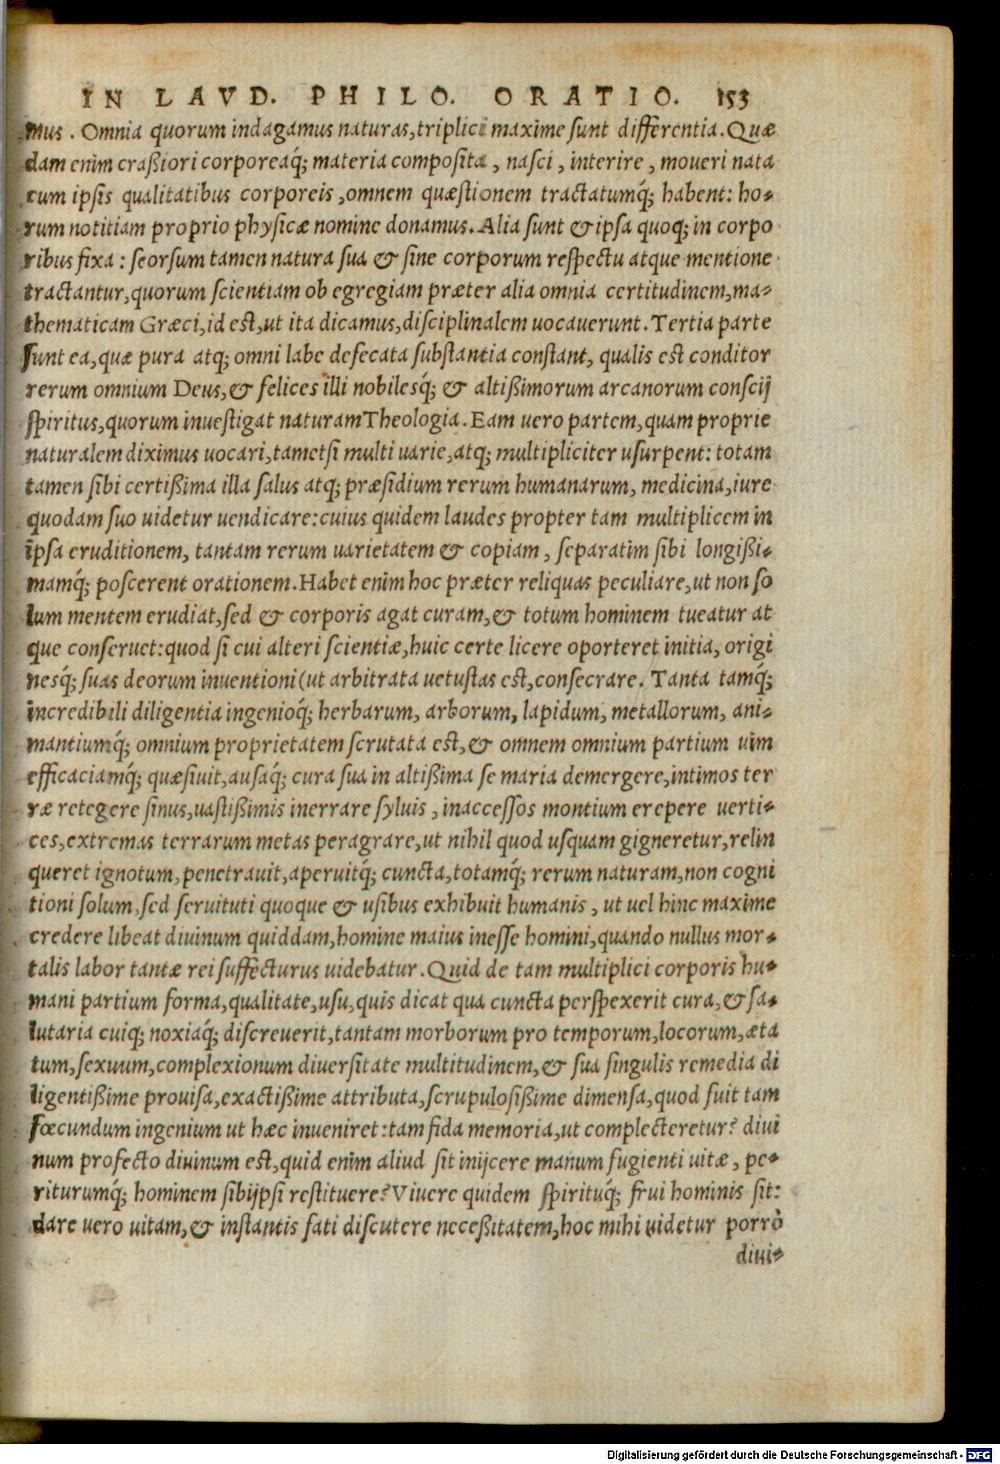 IN LAVD. PHILO. ORATIO. 153
mus. Omnia quorum indagamus naturas, triplici maxime sunt differentia. Quæ
dam enim craßiori corporeaq́; materia composita, nasci, interire, moueri nata
cum ipsis qualitatibus corporeis, omnem quæstionem tractatumq́; habent: ho-
rum notitiam proprio physicæ nomine donamus. Alia sunt & ipsa quoq; in corpo
ribus fixa: seorsum tamen natura sua & sine corporum respectu atque mentione
tractantur, quorum scientiam ob egregiam præter alia omnia certitudinem, ma-
thematicam Græci, id est, ut ita dicamus, disciplinalem uocauerunt. Tertia parte
sunt ea, quæ pura atq; omni labe defecata substantia constant, qualis est conditor
rerum omnium Deus, & felices illi nobilesq́; & altißimorum arcanorum conscij
spiritus, quorum inuestigat naturam Theologia. Eam uero partem, quam proprie
naturalem diximus uocari, tametsi multi uarie, atq; multipliciter usurpent: totam
tamen sibi certißima illa salus atq; præsidium rerum humanarum, medicina, iure
quodam suo uidetur uendicare: cuius quidem laudes propter tam multiplicem in
ipsa eruditionem, tantam rerum uarietatem & copiam, separatim sibi longißi-
mamq́; poscerent orationem. Habet enim hoc præter reliquas peculiare, ut non so
lum mentem erudiat, sed & corporis agat curam, & totum hominem tueatur at
que conseruet: quod si cui alteri scientiæ, huic certe licere oporteret initia, origi
nesq́; suas deorum inuentioni (ut arbitrata uetustas est, consecrare. Tanta tamq́;
incredibili diligentia ingenioq́; herbarum, arborum, lapidum, metallorum, ani-
mantiumq́; omnium proprietatem scrutata est, & omnem omnium partium uim
efficaciamq́; quæsiuit, ausaq́; cura sua in altißima se maria demergere, intimos ter
ræ retegere sinus, uastißimis inerrare syluis, inaccessos montium erepere uerti-
ces, extremas terrarum metas peragrare, ut nihil quod usquam gigneretur, relin
queret ignotum, penetrauit, aperuitq́; cuncta, totamq́; rerum naturam, non cogni
tioni solum, sed seruituti quoque & usibus exhibuit humanis, ut uel hinc maxime
credere libeat diuinum quiddam, homine maius inesse homini, quando nullus mor-
talis labor tantæ rei suffecturus uidebatur. Quid de tam multiplici corporis hu-
mani partium forma, qualitate, usu, quis dicat qua cuncta perspexerit cura, & sa-
lutaria cuiq; noxiaq́; discreuerit, tantam morborum pro temporum, locorum, æta
tum, sexuum, complexionum diuersitate multitudinem, & sua singulis remedia di
ligentißime prouisa, exactißime attributa, scrupulosißime dimensa, quod fuit tam
fœcundum ingenium ut hæc inueniret: tam fida memoria, ut complecteretur? diui
num profecto diuinum est, quid enim aliud sit inijcere manum fugienti uitæ, pe-
riturumq́; hominem sibijpsi restituere? Viuere quidem spirituq́; frui hominis sit:
dare uero uitam, & instantis fati discutere necessitatem, hoc mihi uidetur porrò
diui-
Digitalisierung gefördert durch die Deutsche Forschungsgemeinschaft - DFG